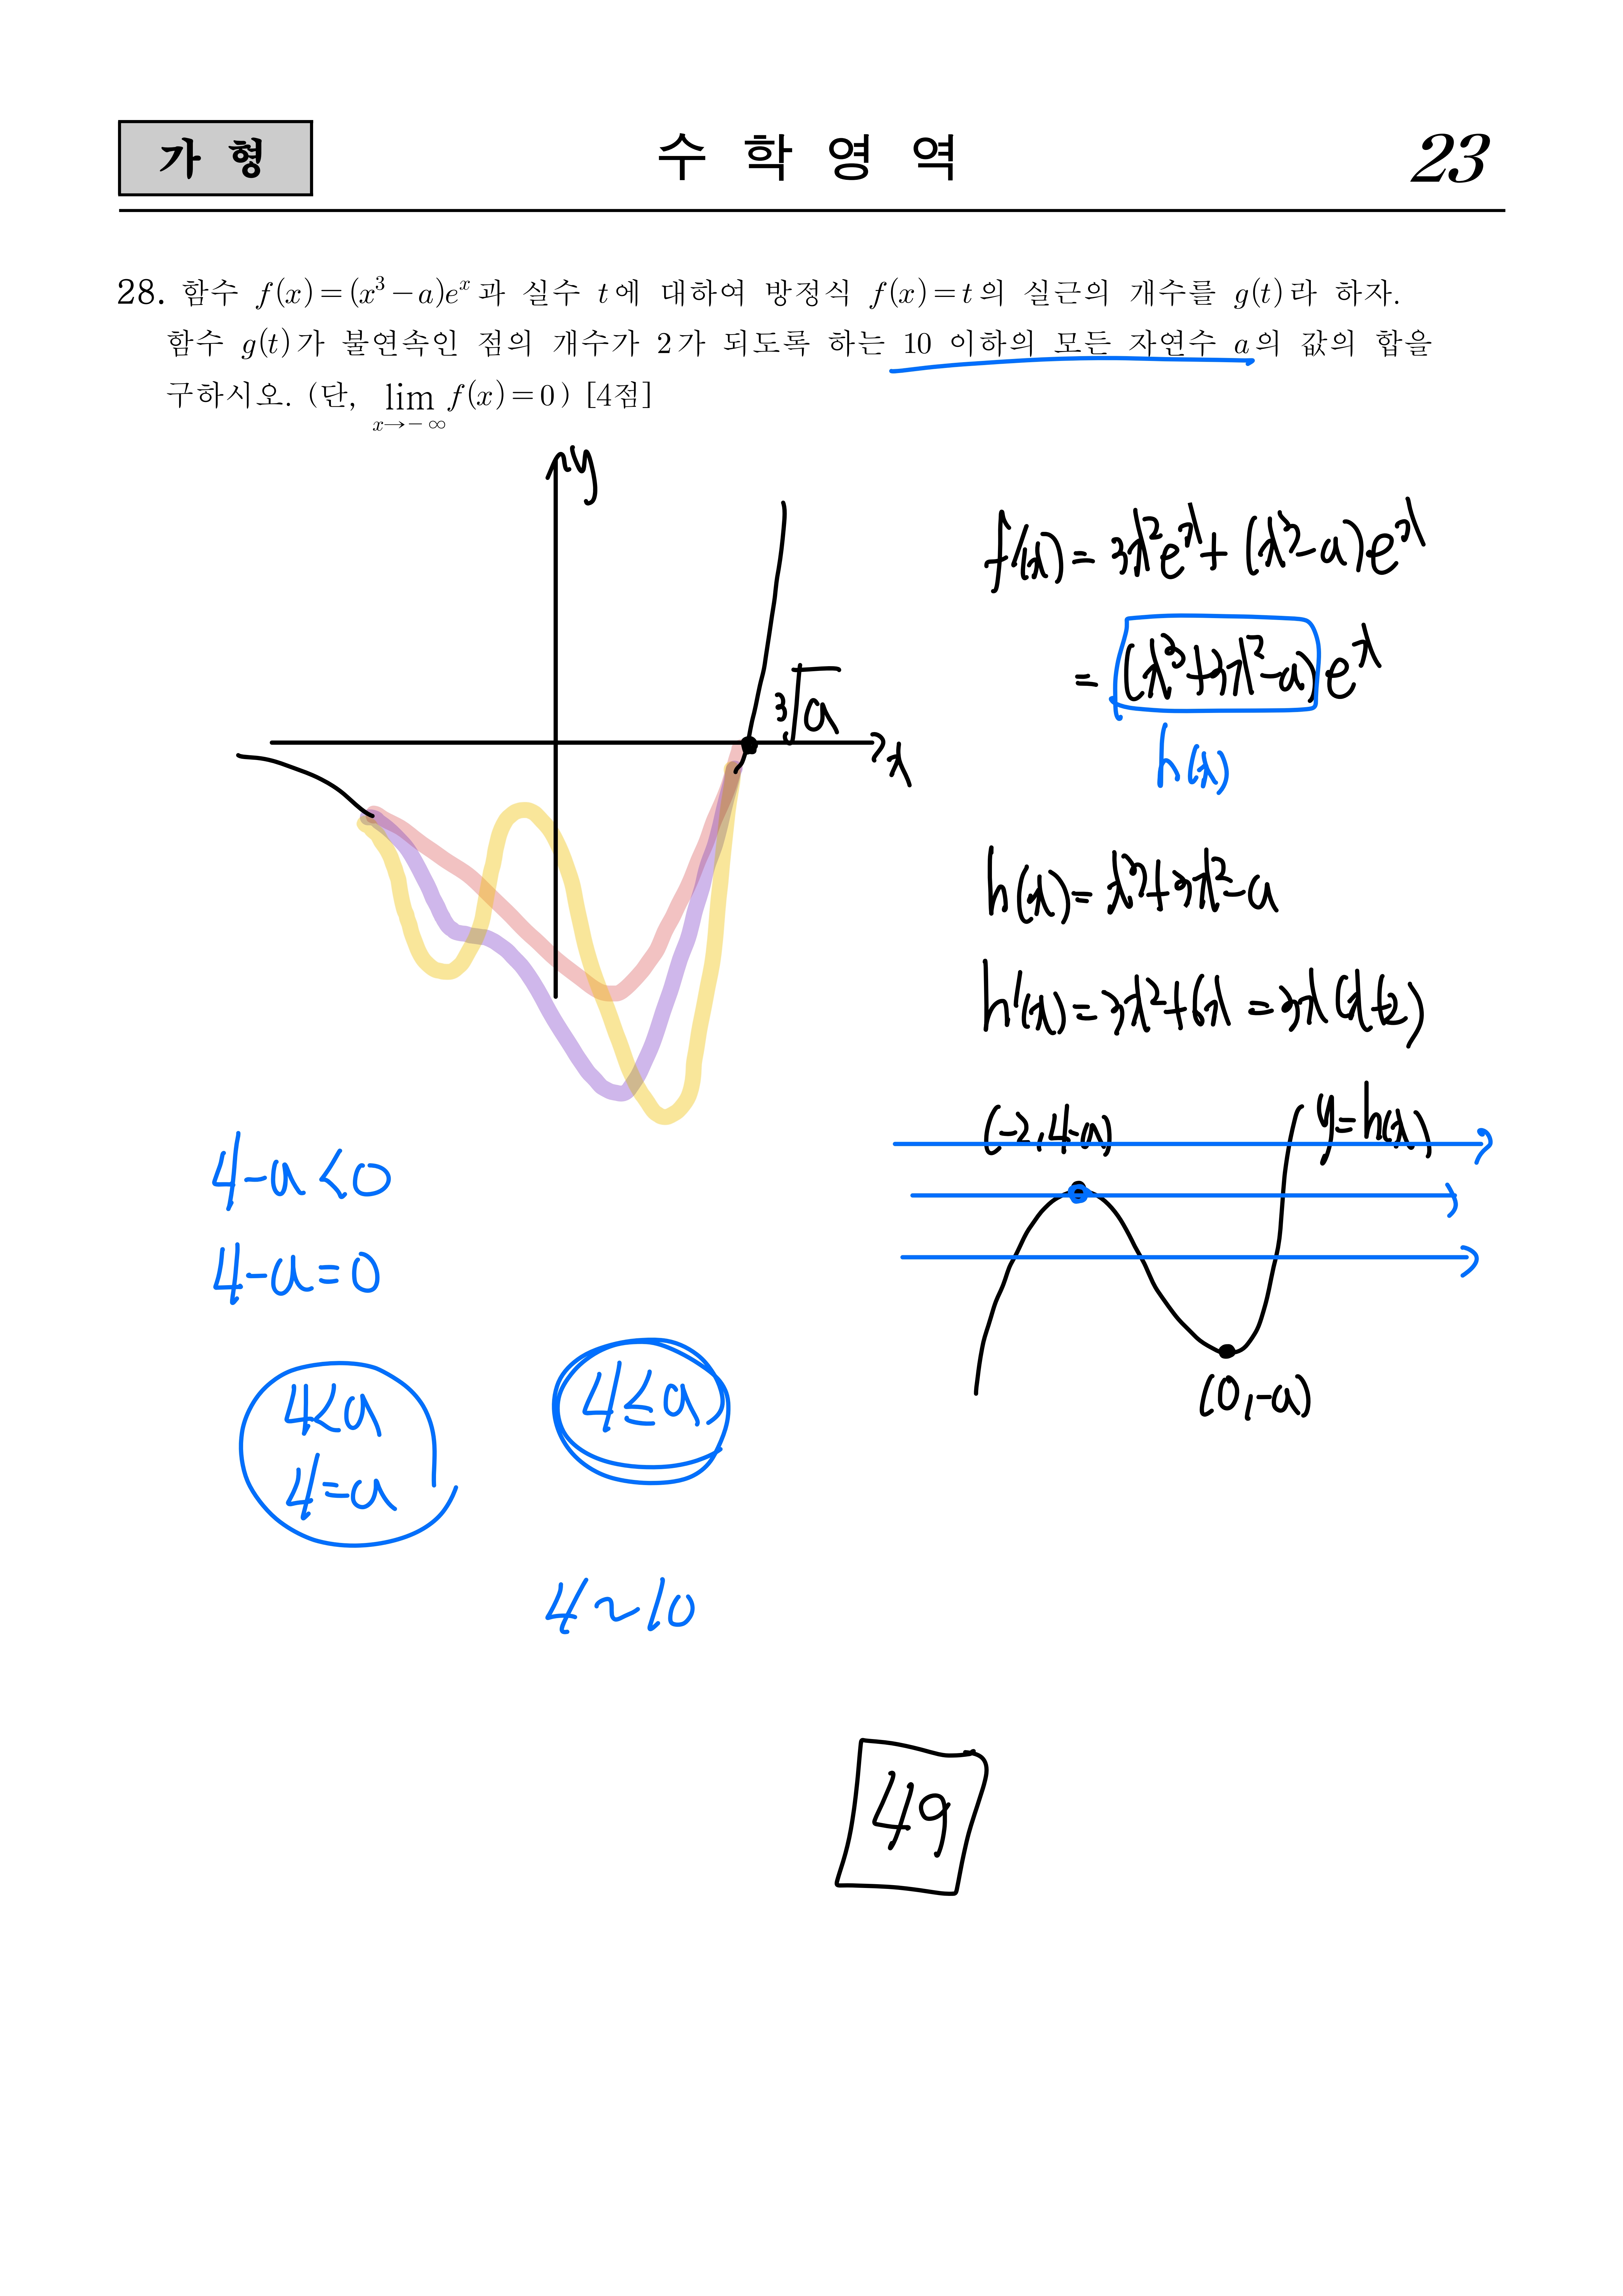 가 형
수 학 영 역
23
28. 함수 f(x)=(x³-a)eˣ과 실수 t에 대하여 방정식 f(x)=t의 실근의 개수를 g(t)라 하자.
함수 g(t)가 불연속인 점의 개수가 2가 되도록 하는 10 이하의 모든 자연수 a의 값의 합을
구하시오. (단, lim f(x)=0) [4점]
x→-∞
y
∛a
x
f'(x)=3x²eˣ+(x³-a)eˣ
=(x³+3x²-a)eˣ
h(x)
h(x)=x³+3x²-a
h'(x)=3x²+6x=3x(x+2)
(-2,4-a)
y=h(x)
(0,-a)
4-a<0
4-a=0
4<a
4=a
4≤a
4~10
49